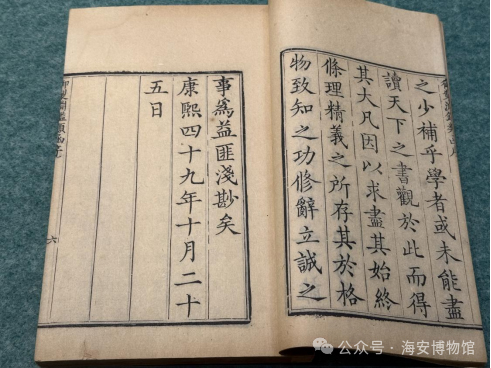 之少補乎學者或未能盡
讀天下之書觀於此而得
其大凡因以求盡其始終
條理精義之所存其於格
物致知之功修辭立誠之
事為益匪淺尠矣
康熙四十九年十月二十
五日
六
公众号·海安博物馆